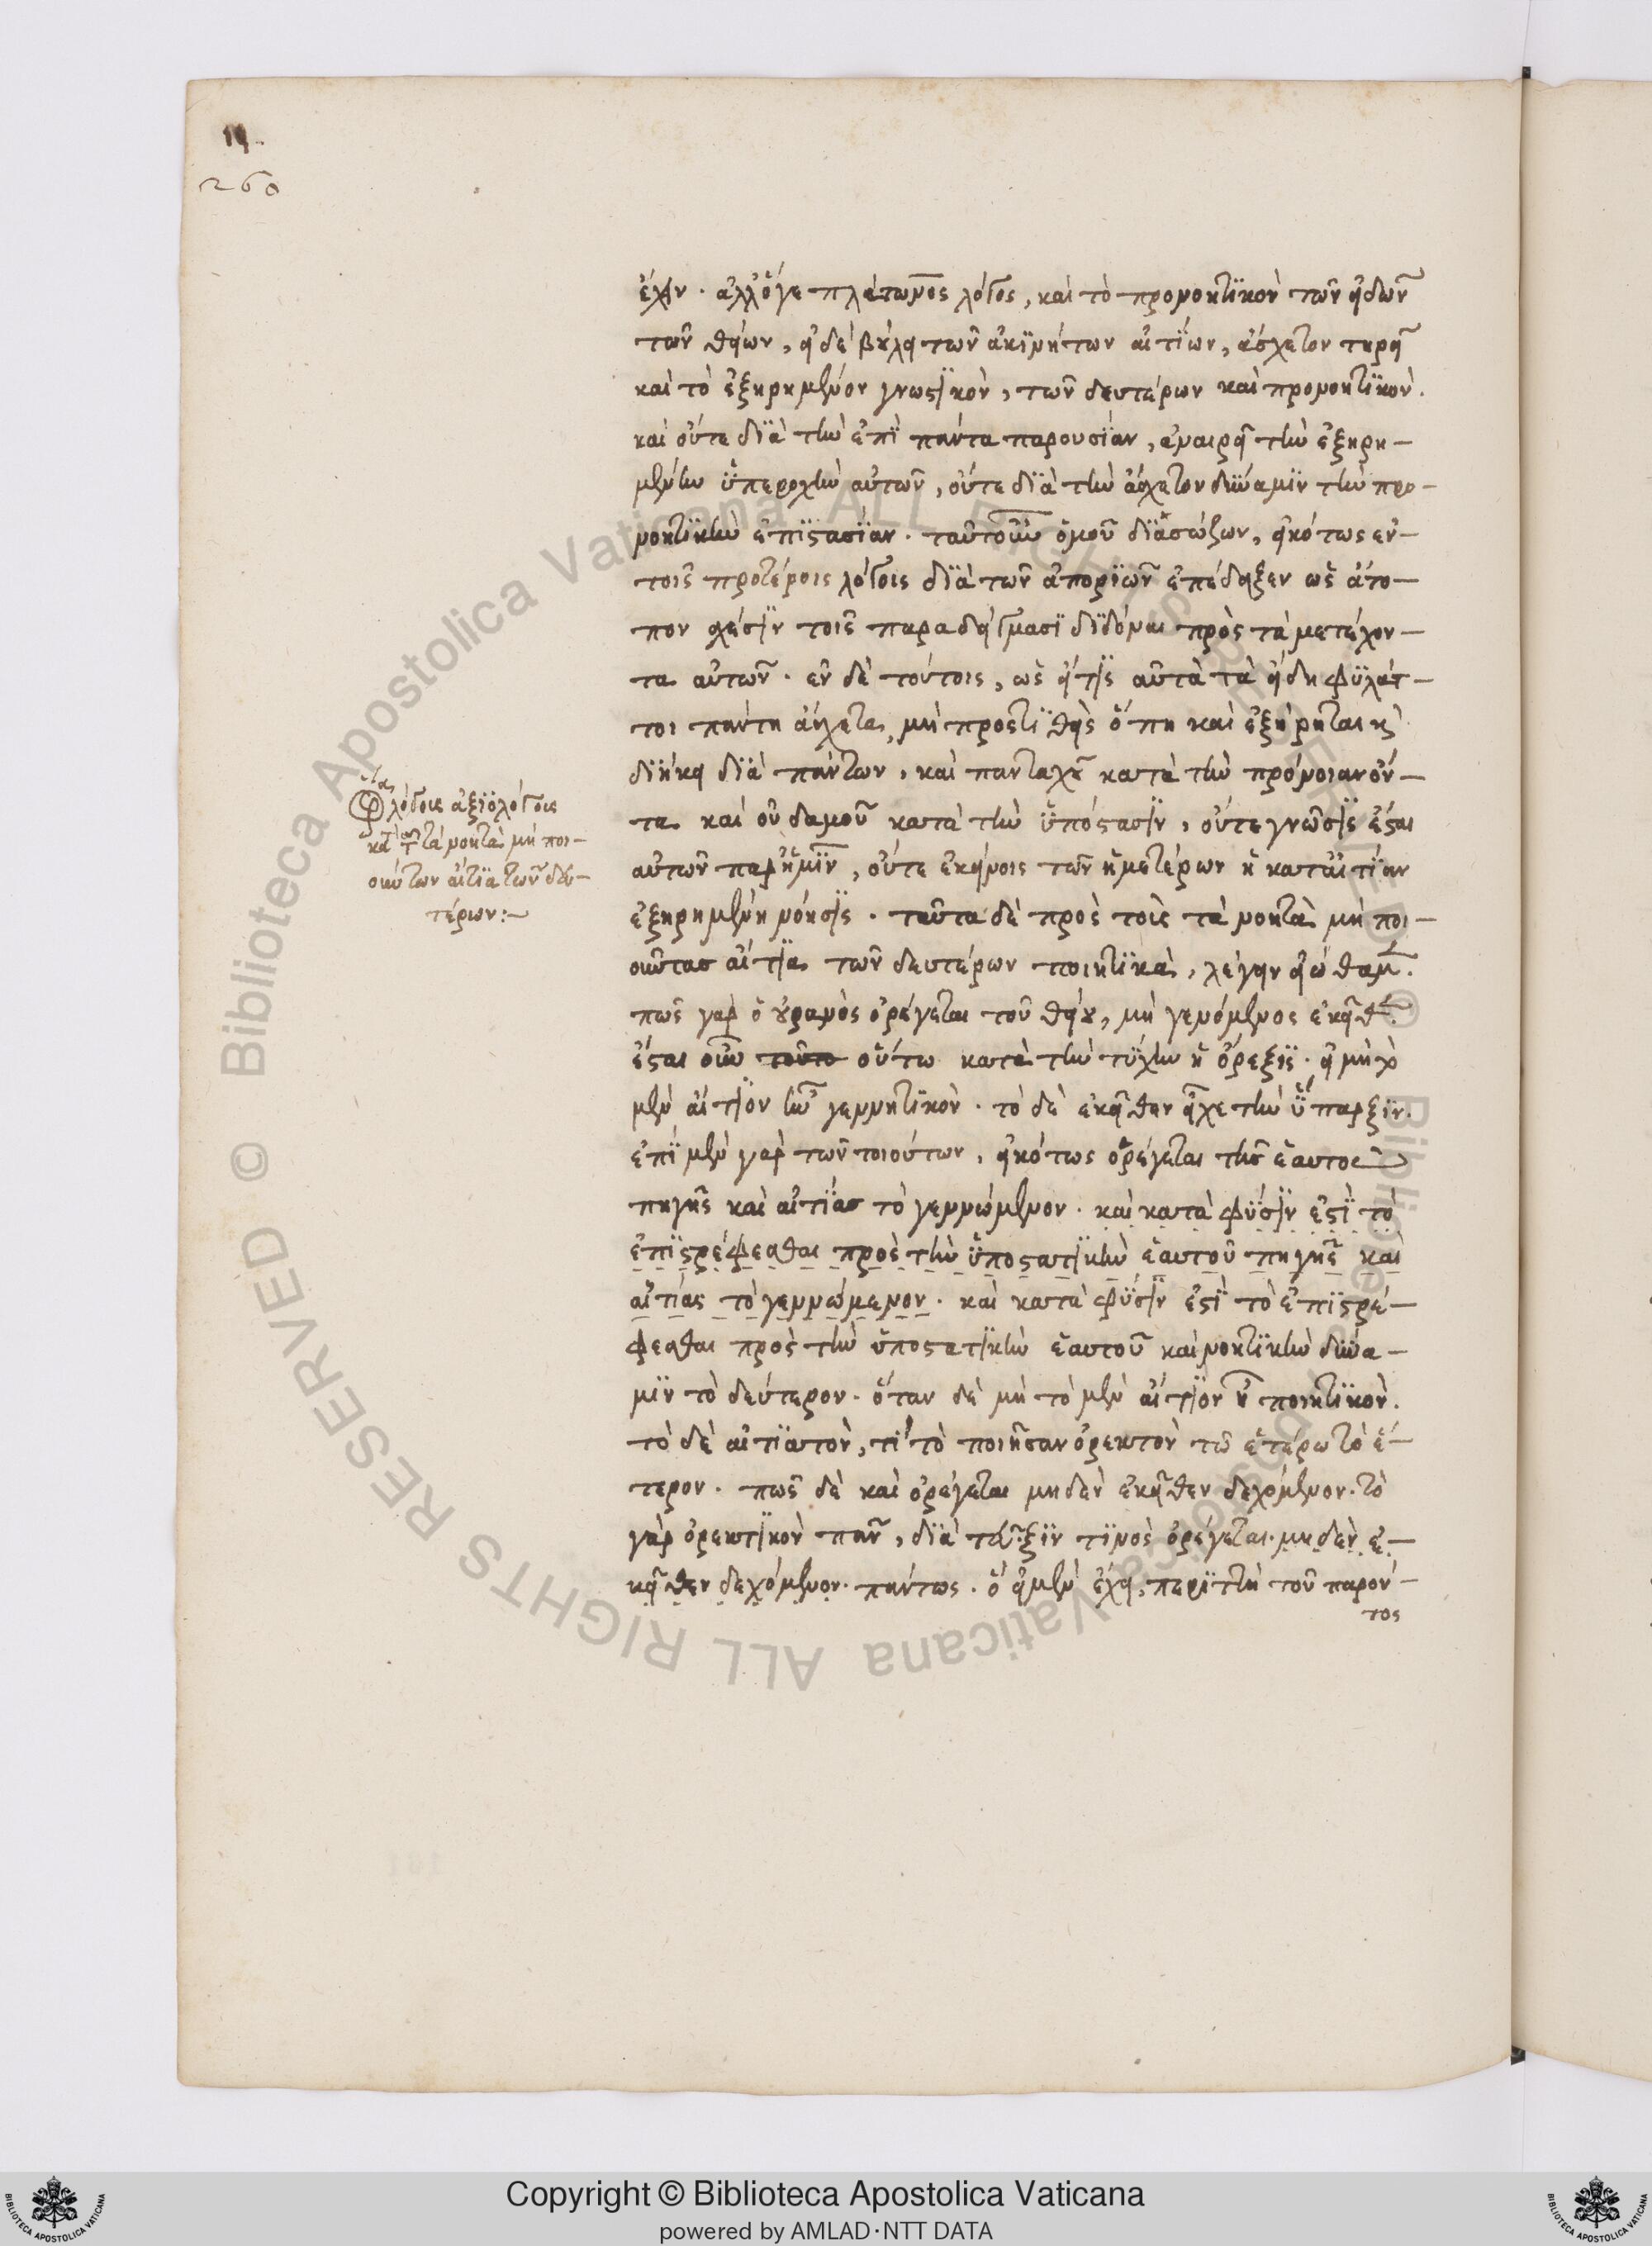 19.
260
ἔχειν. ἀλλ' ὅγε πλάτωνος λόγος, καὶ τὸ προνοητϊκὸν τῶν εἰδῶν
τῶν θείων, εἰ δὲ βούλει τῶν ἀκϊνήτων αἰτϊων, ἄσχετον τηρεῖ
καὶ τὸ ἐξηρημένον γνωστϊκὸν, τῶν δευτέρων καὶ προνοητϊκὸν.
καὶ οὔτε διὰ τὴν ἐπὶ πάντα παρουσίαν, ἀναιρεῖ τὴν ἐξηρη-
μένην ὑπεροχὴν αὐτῶν, οὔτε διὰ τὴν ἄσχετον δύναμϊν τὴν προ-
νοητϊκὴν ἐπϊστασίαν. ταῦτ' οὖν ὁμοῦ διασώζων, εἰκότως ἐν
τοῖς προτέροις λόγοις διὰ τῶν ἀποριῶν ἐπέδειξεν ὡς ἄτο-
πον σχέσϊν τοῖς παραδείγμασϊ διδόναι πρὸς τὰ μετέχον-
τα αὐτῶν. ἐν δὲ τούτοις, ὡς εἴτϊς αὐτὰ τὰ εἴδη φυλάτ-
τοι πάντη ἄσχετα, μὴ προστϊθεὶς ὅπη καὶ ἐξήρηται κὶ
διήκει διὰ πάντων, καὶ πανταχοῦ κατὰ τὴν πρόνοιαν ὄν-
τα καὶ οὐδαμοῦ κατὰ τὴν ὑπόστασϊν, οὔτε γνῶσϊς ἔσται
αὐτῶν παρ' ἡμῖν, οὔτε ἐκείνοις τῶν ἡμετέρων ἡ κατ' αἰτίαν
ἐξηρημένη νόησϊς. ταῦτα δὲ πρὸς τοὺς τὰ νοητὰ μὴ ποι-
οῦντας αἴτϊα τῶν δευτέρων ποιητϊκὰ, λέγειν εἰώθαμ.
πῶς γὰρ ὁ οὐρανὸς ὀρέγεται τοῦ θείου, μὴ γενόμενος ἐκεῖθ.
ἔσται οὖν τοῦτο οὕτω κατὰ τὴν τύχην ἡ ὄρεξϊς. εἰ μὴ τὸ
μὲν αἴτϊον ἦν γεννητϊκὸν. τὸ δὲ ἐκεῖθεν εἶχε τὴν ὕπαρξϊν.
ἐπὶ μὲν γὰρ τῶν τοιούτων, εἰκότως ὀρέγεται τῆς ἑαυτοῦ
πηγῆς καὶ αἰτίας τὸ γεννώμενον. καὶ κατὰ φύσϊν ἐστὶ τὸ
ἐπϊστρέφεσθαι πρὸς τὴν ὑποστατϊκὴν ἑαυτοῦ πηγῆς καὶ
αἰτίας τὸ γεννώμενον. καὶ κατὰ φύσϊν ἐστὶ τὸ ἐπϊστρέ-
φεσθαι πρὸς τὴν ὑποστατϊκὴν ἑαυτοῦ καὶ νοητϊκὴν δύνα-
μϊν τὸ δεύτερον. ὅταν δὲ μὴ τὸ μὲν αἴτϊον ᾖ ποιητϊκὸν.
τὸ δὲ αἰτϊατὸν, τί τὸ ποιῆσαν ὀρεκτὸν τῶ ἑτέρω τὸ ἕ-
τερον. πῶς δὲ καὶ ὀρέγεται μηδὲν ἐκεῖθεν δεχόμενον. τὸ
γὰρ ὀρεκτϊκὸν πᾶν, διὰ τεῦξϊν τϊνὸς ὀρέγεται. μηδὲν ἐ-
κεῖθεν δεχόμενον. πάντως. ὃ εἰ μὲν ἔχει, περϊττὴ τοῦ παρόν-
τος
λόγοις ἀξϊολόγοις
κατὰ τῶν τὰ νοητὰ μὴ ποι-
ούντων αἴτϊα τῶν δευ-
τέρων:-
Copyright © Biblioteca Apostolica Vaticana
powered by AMLAD·NTT DATA